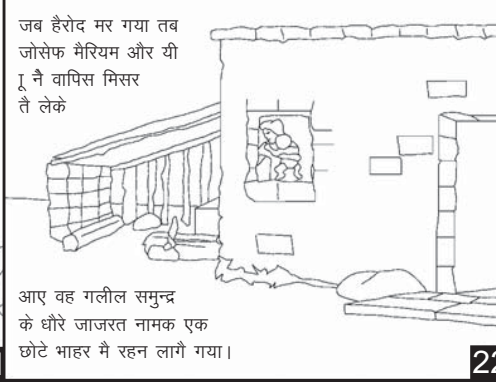 जब हैरोद मर गया तब
जोसेफ मैरियम और यी
ू नै वापिस मिसर
तै लेके
आए वह गलील समुन्द्र
के धौरे जाजरत नामक एक
छोटे भाहर मै रहन लागै गया।